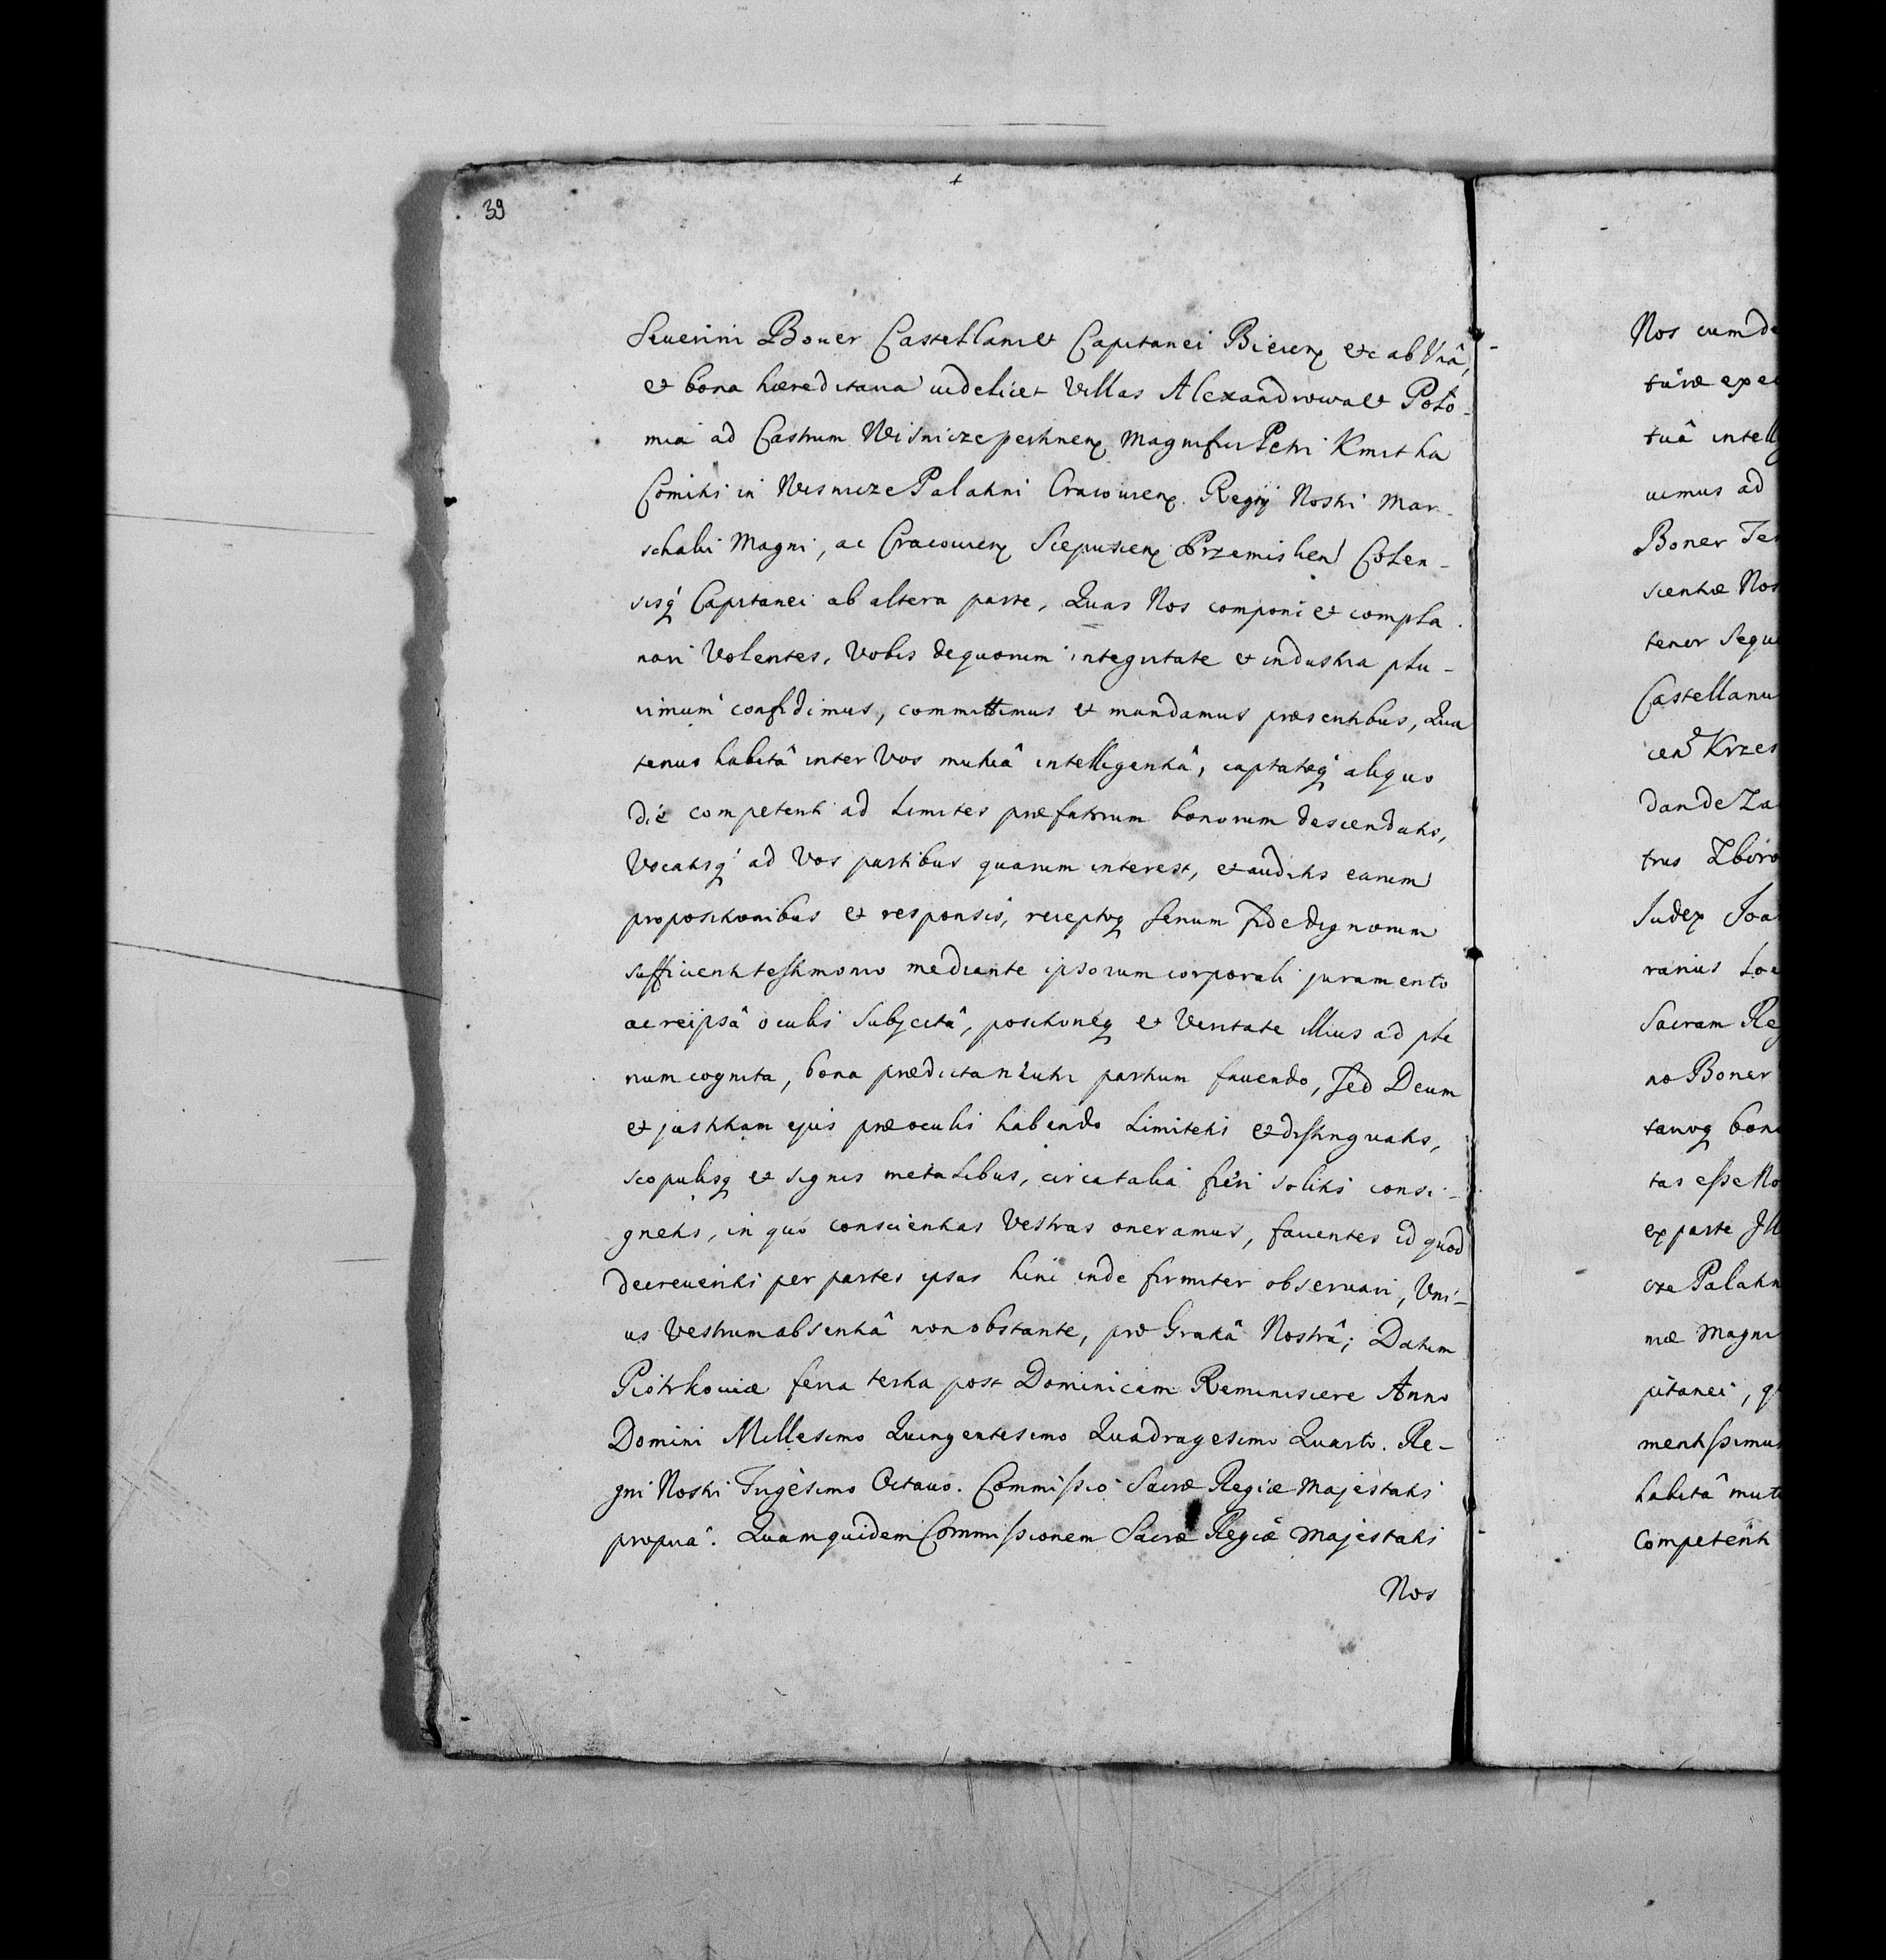 39
Severini Boner Castellani et Capitanei Biecenẜ etc ab Unâ,
et bona hæreditaria videlicet Villas Alexandrowa et Poło-
mia ad Castrum Wisnicze pertinenẜ Magnifici Petri Kmitha
Comitis in Wisnicze Palatini Cracovienẜ. Regnj Nostri Mar-
schalci Magni, ac Cracovienẜ Scepusienẜ Przemislien Colen-
sisq́ Capitanei ab altera parte, Quas Nos componi et compla
nari Volentes, Vobis de quorum integritate et industria plu-
rimum confidimus, committimus et mandamus præsentibus, Qua
tenus habitâ inter Vos mutuâ intelligentiâ, captatoq́ aliquo
die competenti ad Limites præfatorum bonorum descendatis,
Vocatisq́ ad Vos partibus quarum interest, et auditis earum
propositionibus et responsis, receptoq Senum fide dignorum
sufficienti testimonio mediante ipsorum corporali juramento
ac re ipsâ oculis Subjectâ, positioneq et Veritate illius ad ple
num cognita, bona prædicta neutri partium favendo, Sed Deum
et justitiam ejus præ oculis habendo Limitetis et distinguatis,
scopulisq et signis metalibus, circa talia fieri solitis consi-
gnetis, in quo conscientias Vestras oneramus, faventes id quod
decreveritis per partes ipsas hinc inde firmiter observari, Uni-
us Vestrum absentiâ non obstante, pro Gratiâ Nostrâ; Datum
Piotrkoviæ feria tertia post Dominicam Reminiscere Anno
Domini Millesimo Quingentesimo Quadragesimo Quarto. Re-
gni Nostri Trigesimo Octavo. Commissio Sacræ Regiæ Majestatis
propria. Quam quidem Commissionem Sacræ Regiæ Majestatis
Nos
Nos cum de
turæ expe
tuâ intellig
vimus ad
Boner Ter
scentiæ Nos
tenor Sequ
Castellanu
cen Krzes
dan de Za
trus Zboro
Judex Joa
ranius Loc
Sacram Reg
no Boner
taniq bon
tas esse No
ex parte Ill
cze Palatin
niæ Magni
pitanei, q
mentissimus
habitâ mut
Competenti